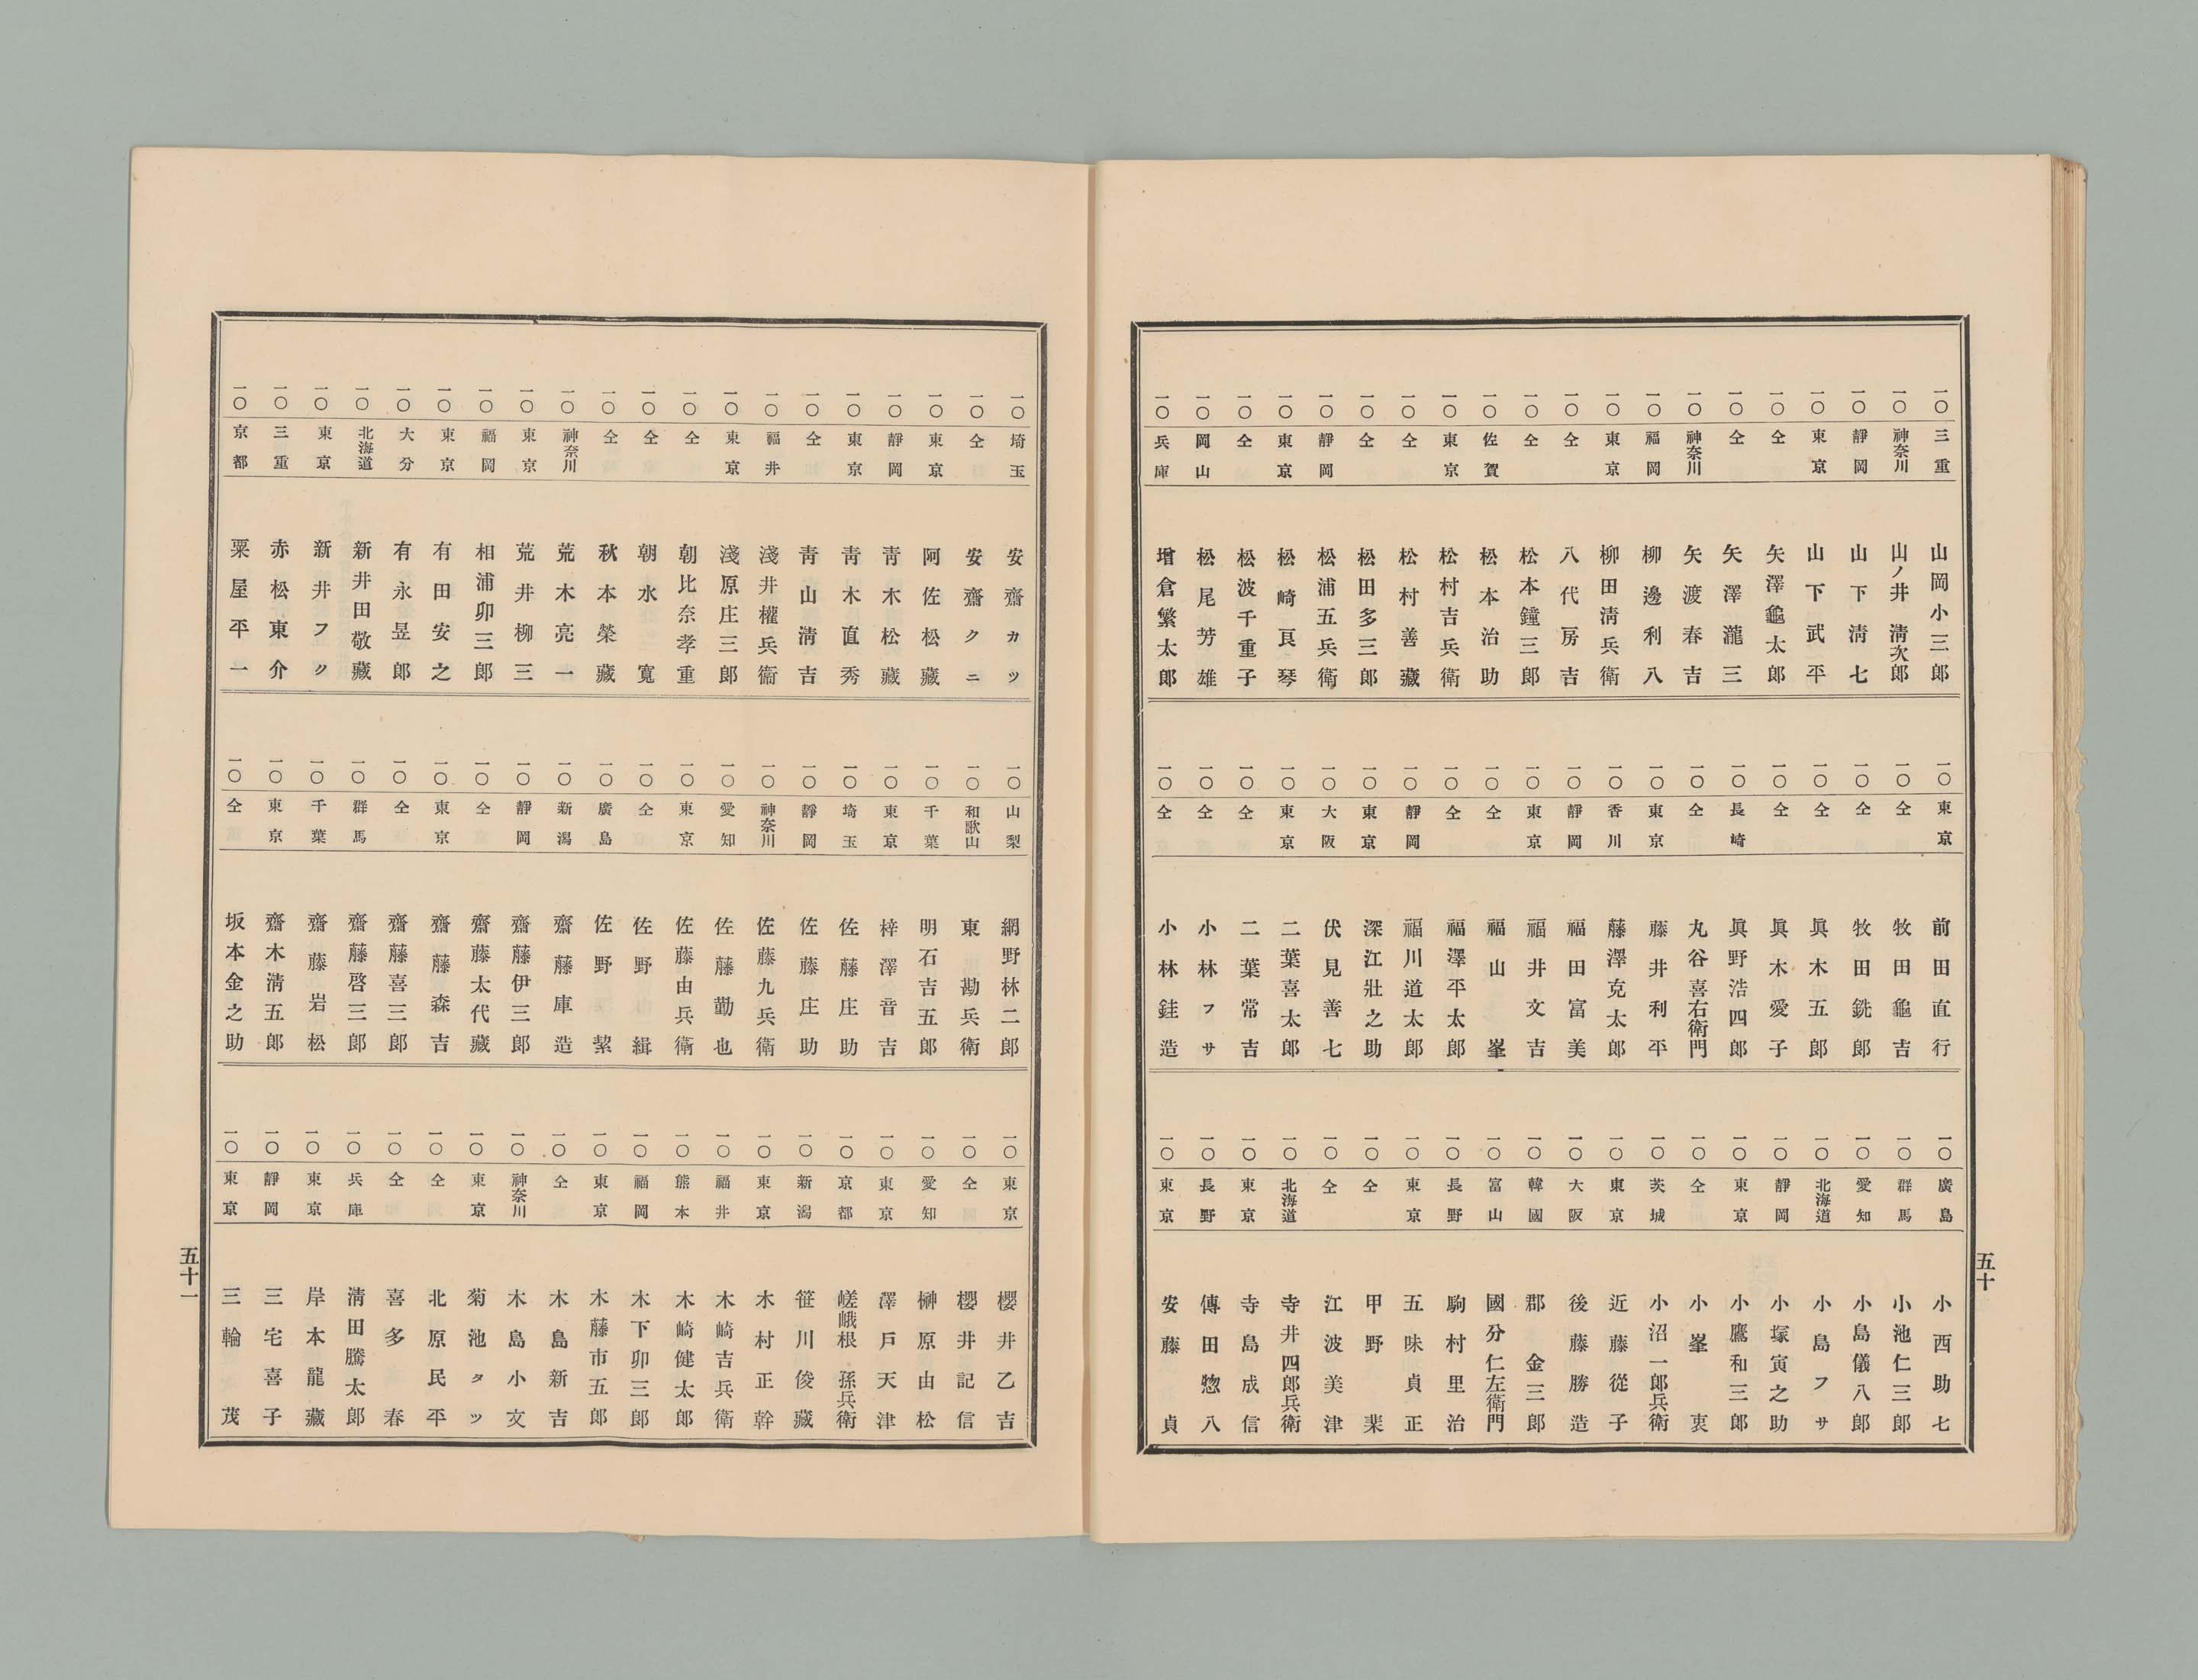 一〇 三重 山岡小三郎
一〇 神奈川 山ノ井淸次郎
一〇 靜岡 山下淸七
一〇 東京 山下武平
一〇 仝 矢澤龜太郎
一〇 仝 矢澤瀧三
一〇 神奈川 矢渡春吉
一〇 福岡 柳邊利八
一〇 東京 柳田淸兵衛
一〇 仝 八代房吉
一〇 仝 松本鐘三郎
一〇 佐賀 松本治助
一〇 東京 松村吉兵衛
一〇 仝 松村善藏
一〇 仝 松田多三郎
一〇 靜岡 松浦五兵衛
一〇 東京 松崎良琴
一〇 仝 松波千重子
一〇 岡山 松尾芳雄
一〇 兵庫 增倉繁太郎
一〇 東京 前田直行
一〇 仝 牧田龜吉
一〇 仝 牧田銑郎
一〇 仝 眞木五郎
一〇 仝 眞木愛子
一〇 長崎 眞野浩四郎
一〇 仝 丸谷喜右衛門
一〇 東京 藤井利平
一〇 香川 藤澤克太郎
一〇 靜岡 福田富美
一〇 東京 福井文吉
一〇 仝 福山峯
一〇 仝 福澤平太郎
一〇 靜岡 福川道太郎
一〇 東京 深江壯之助
一〇 大阪 伏見善七
一〇 東京 二葉喜太郎
一〇 仝 二葉常吉
一〇 仝 小林フサ
一〇 仝 小林銈造
一〇 廣島 小西助七
一〇 群馬 小池仁三郎
一〇 愛知 小島儀八郎
一〇 北海道 小島フサ
一〇 靜岡 小塚寅之助
一〇 東京 小鷹和三郎
一〇 仝 小峯衷
一〇 茨城 小沼一郎兵衛
一〇 東京 近藤從子
一〇 大阪 後藤勝造
一〇 韓國 郡金三郎
一〇 富山 國分仁左衛門
一〇 長野 駒村里治
一〇 東京 五味貞正
一〇 仝 甲野棐
一〇 仝 江波美津
一〇 北海道 寺井四郎兵衛
一〇 東京 寺島成信
一〇 長野 傳田惣八
一〇 東京 安藤貞
五十
一〇 埼玉 安齋カツ
一〇 仝 安齋クニ
一〇 東京 阿佐松藏
一〇 靜岡 靑木松藏
一〇 東京 靑木直秀
一〇 仝 靑山淸吉
一〇 福井 淺井權兵衞
一〇 東京 淺原庄三郎
一〇 仝 朝比奈孝重
一〇 仝 朝水寬
一〇 仝 秋本榮藏
一〇 神奈川 荒木亮一
一〇 東京 荒井柳三
一〇 福岡 相浦卯三郎
一〇 東京 有田安之
一〇 大分 有永昱郎
一〇 北海道 新井田敬藏
一〇 東京 新井フク
一〇 三重 赤松東介
一〇 京都 粟屋平一
一〇 山梨 網野林二郎
一〇 和歌山 東勘兵衛
一〇 千葉 明石吉五郎
一〇 東京 梓澤音吉
一〇 埼玉 佐藤庄助
一〇 靜岡 佐藤庄助
一〇 神奈川 佐藤九兵衛
一〇 愛知 佐藤勤也
一〇 東京 佐藤由兵衛
一〇 仝 佐野緝
一〇 廣島 佐野䋖
一〇 新潟 齋藤庫造
一〇 靜岡 齋藤伊三郎
一〇 仝 齋藤太代藏
一〇 東京 齋藤森吉
一〇 仝 齋藤喜三郎
一〇 群馬 齋藤啓三郎
一〇 千葉 齋藤岩松
一〇 東京 齋木淸五郎
一〇 仝 坂本金之助
一〇 東京 櫻井乙吉
一〇 仝 櫻井記信
一〇 愛知 榊原由松
一〇 東京 澤戸天津
一〇 京都 嵯峨根孫兵衛
一〇 新潟 笹川俊藏
一〇 東京 木村正幹
一〇 福井 木崎吉兵衛
一〇 熊本 木崎健太郎
一〇 福岡 木下卯三郎
一〇 東京 木藤市五郎
一〇 仝 木島新吉
一〇 神奈川 木島小文
一〇 東京 菊池タツ
一〇 仝 北原民平
一〇 仝 喜多春
一〇 兵庫 淸田騰太郎
一〇 東京 岸本龍藏
一〇 靜岡 三宅喜子
一〇 東京 三輪茂
五十一